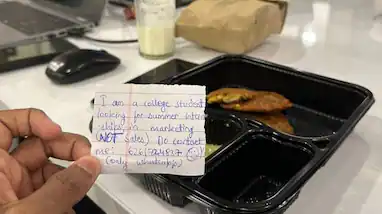 I am a college student
looking for summer intern
ships in marketing
(NOT sales) Do contact
me:
(only whatsapp)